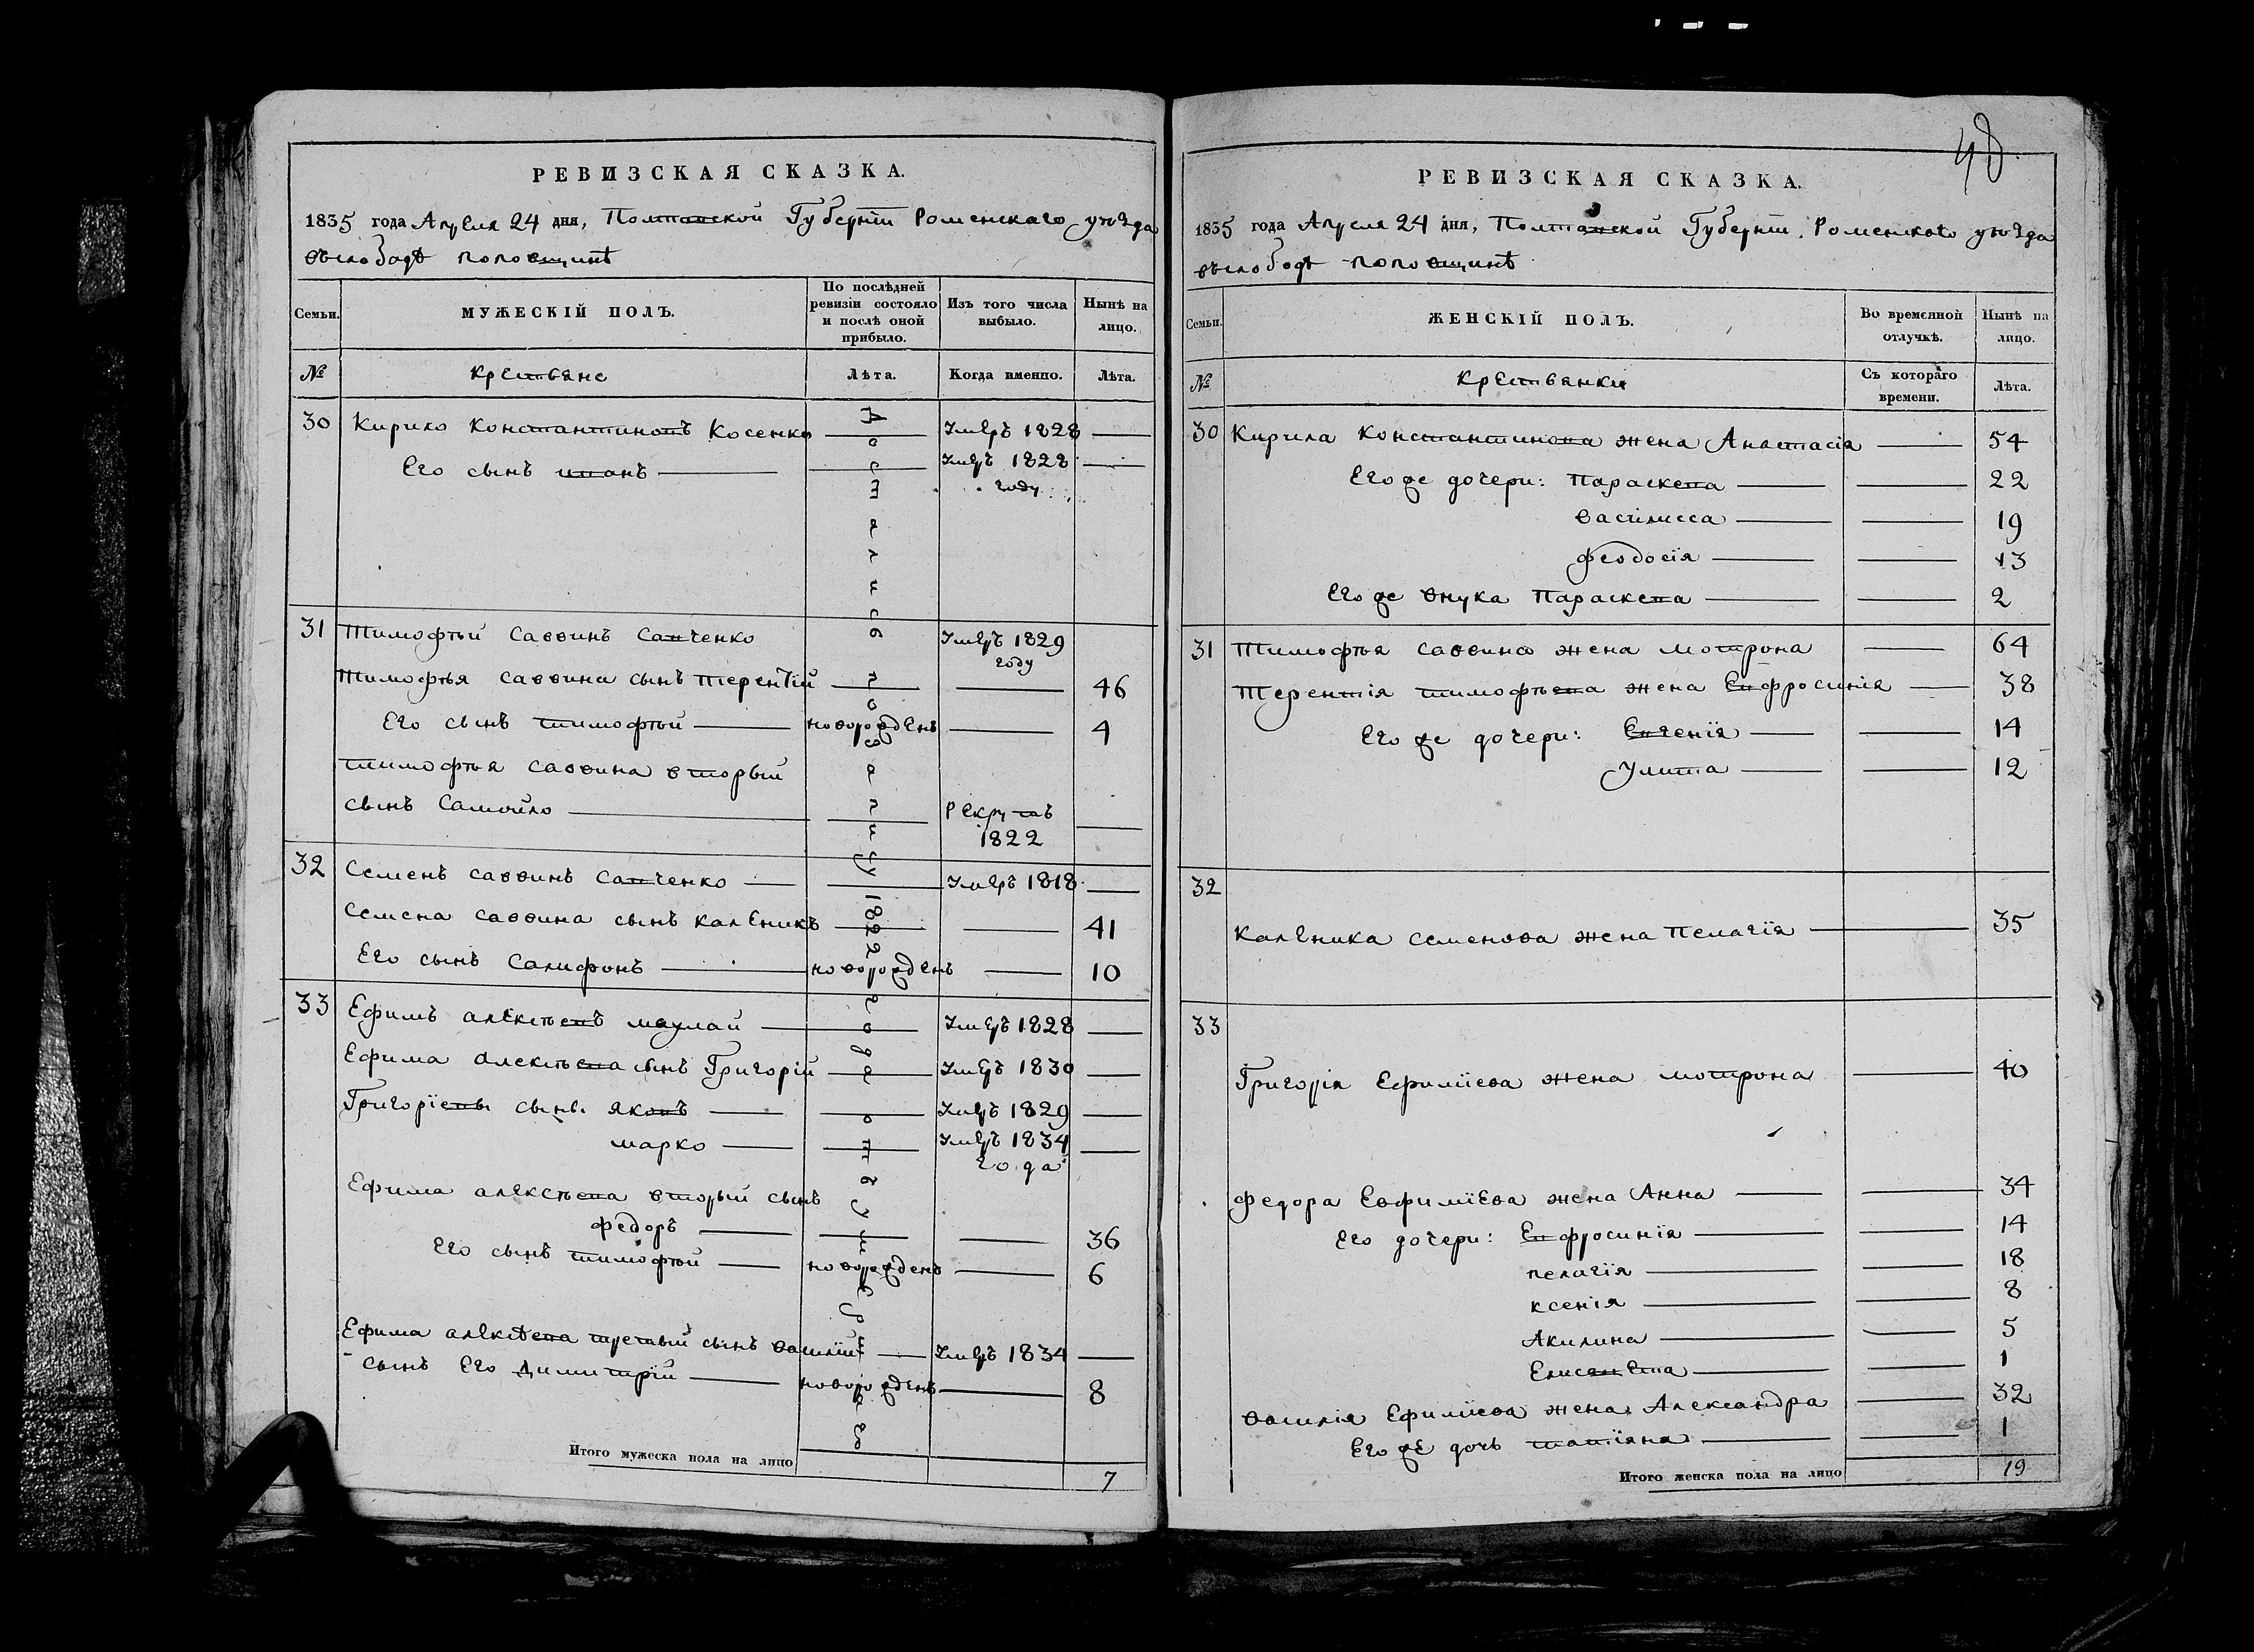 РЕВИЗСКАЯ СКАЗКА.
1835 года Апреля 24 дня, Полтавской Губерніи Роменскаго уѣзда
въ слободѣ Поповщинѣ
Семьи.
МУЖЕСКІЙ ПОЛЪ.
По послѣдней ревизіи состояло и послѣ оной прибыло.
Изъ того числа выбыло.
Нынѣ на лицо.
№ Крестьяне Лѣта. Когда именно. Лѣта.
30 Кирило Константиновъ Косенко — Умеръ 1828 —
Его сынъ Иванъ — — Умеръ 1828 —
году
31 Тимофѣй Саввинъ Савченко Умеръ 1829
году
Тимофѣя Саввина сынъ Терентій — — 46
Его сынъ Тимофѣй — новорожденъ — 4
Тимофѣя Саввина вторый
сынъ Самойло — — Рекрутъ —
1822
32 Семенъ Саввинъ Савченко — — Умеръ 1818 —
Семена Саввина сынъ Каленикъ — — 41
Его сынъ Салифонъ — новорожденъ — 10
33 Ефимъ Алексѣевъ — — Умеръ 1828 —
Ефима Алексѣева сынъ Григорій — Умеръ 1830 —
Григоріевы сыны Яковъ — — Умеръ 1829 —
Марко — — Умеръ 1834 —
года
Ефима Алексѣева вторый сынъ
Федоръ — — — 36
Его сынъ Тимофѣй — новорожденъ — 6
Ефима Алексѣева третій сынъ Василій — Умеръ 1834 —
Сынъ Его Димитрій — новорожденъ — 8
Итого мужеска пола на лицо 7
1822 года
48.
РЕВИЗСКАЯ СКАЗКА.
1835 года Апреля 24 дня, Полтавской Губерніи. Роменскаго уѣзда
въ слободѣ Поповщинѣ
Семьи.
ЖЕНСКІЙ ПОЛЪ.
Во времянной отлучкѣ.
Нынѣ на лицо.
№ Крестьянки Съ котораго времени. Лѣта.
30 Кирила Константинова жена Анастасія — 54
Его же дочери: Параскева — — 22
Василисса — — 19
Феодосія — — 13
Его же внука Параскева — — 2
31 Тимофѣя Саввина жена Мотрона — 64
Терентія Тимофѣева жена Евфросинія — 38
Его же дочери: Евгенія — — 14
Улита — — 12
32
Каленика Семенова жена Пелагія — — 35
33
Григорія Ефиміева жена Мотрона — 40
Федора Евфиміева жена Анна — — 34
Его дочери: Евфросинія — — 14
Пелагія — — 18
Ксенія — — 8
Акилина — — 5
Елисавета — — 1
Василія Ефиміева жена Александра — 32
Его же дочь Татіяна — — 1
Итого женска пола на лицо 19